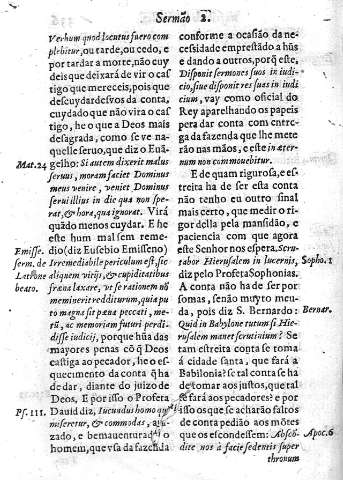 Sermão 2.
Verbum quod locutus fuero com
plebitur, ou tarde, ou cedo, e
por tardar a morte, não cuy
deis que deixará de vir o cas
tigo que mereceis, pois que
descuydardesvos da conta,
cuydado que não vira o cas
tigo, he o que a Deos mais
desagrada, como se ve na-
quelle servo, que diz o Euã-
Mat. 24 gelho: Si autem dixerit malus
servus, moram faciet Dominus
meus venire, veniet Dominus
servi illius in die qua non spe-
rat, & hora, qua ignorat. Virá
quãdo menos cuydar. E he
este hum mal sem reme-
Emisse. dio (diz Eusebio Emisseno)
serm. de Irremediabile periculum est, sic
Latrone aliquem vitijs, & cupiditatibus
beato. fræna laxare, ve se rationem nõ
meminerit redditurum, quia pu
to magna sit pæna peccati, me-
tũ, ac memoriam futuri perdi-
disse iudicij, porque hũa das
mayores penas cõ q̃ Deos
castiga ao peccador, he o es-
quecimento da conta q̃ ha
de dar, diante do juizo de
Deos. E por isso o Profeta
Ps. 111. David diz, Iucundus homo qui
miseretur, & commodat, aju-
dado, e bemaventurado o
homem, que usa da fazenda
conforme a ocasião da ne-
cessidade emprestãdo a hũs
e dando a outros, porq̃ este,
Disponit sermones suos in iudi-
cio, sive disponit res suas in iudi
cium, vay como oficial do
Rey aparelhando os papeis
pera dar conta com entre-
ga da fazenda que lhe mete
rão nas mãos, e este in æter-
num non commovebitur.
E de quam rigurosa, e es-
treita ha de ser esta conta
não tenho eu outro sinal
mais certo, que medir o ri-
gor della pela mansidão, e
paciencia com que agora
este Senhor nos espera. Scru
tabor Hierusalem in lucernis, Sopho. 1
diz pelo Profeta Sophonias.
A conta não ha de ser por
somas, senão muyto meu
da, pois diz S. Bernardo: Bernar.
Quid in Babylone tutum si Hie-
rusalem manet scrutinium? Se
tam estreita conta se toma
á cidade santa, que fará a
Babilonia? se tal conta se ha
de tomar aos justos, que tal
se fará aos peccadores? e por
isso os que se acharão faltos
de conta pedião aos mõtes
que os escondessem: Abscõ- Apoc. 6
dite nos à facie sedentis super
thronum